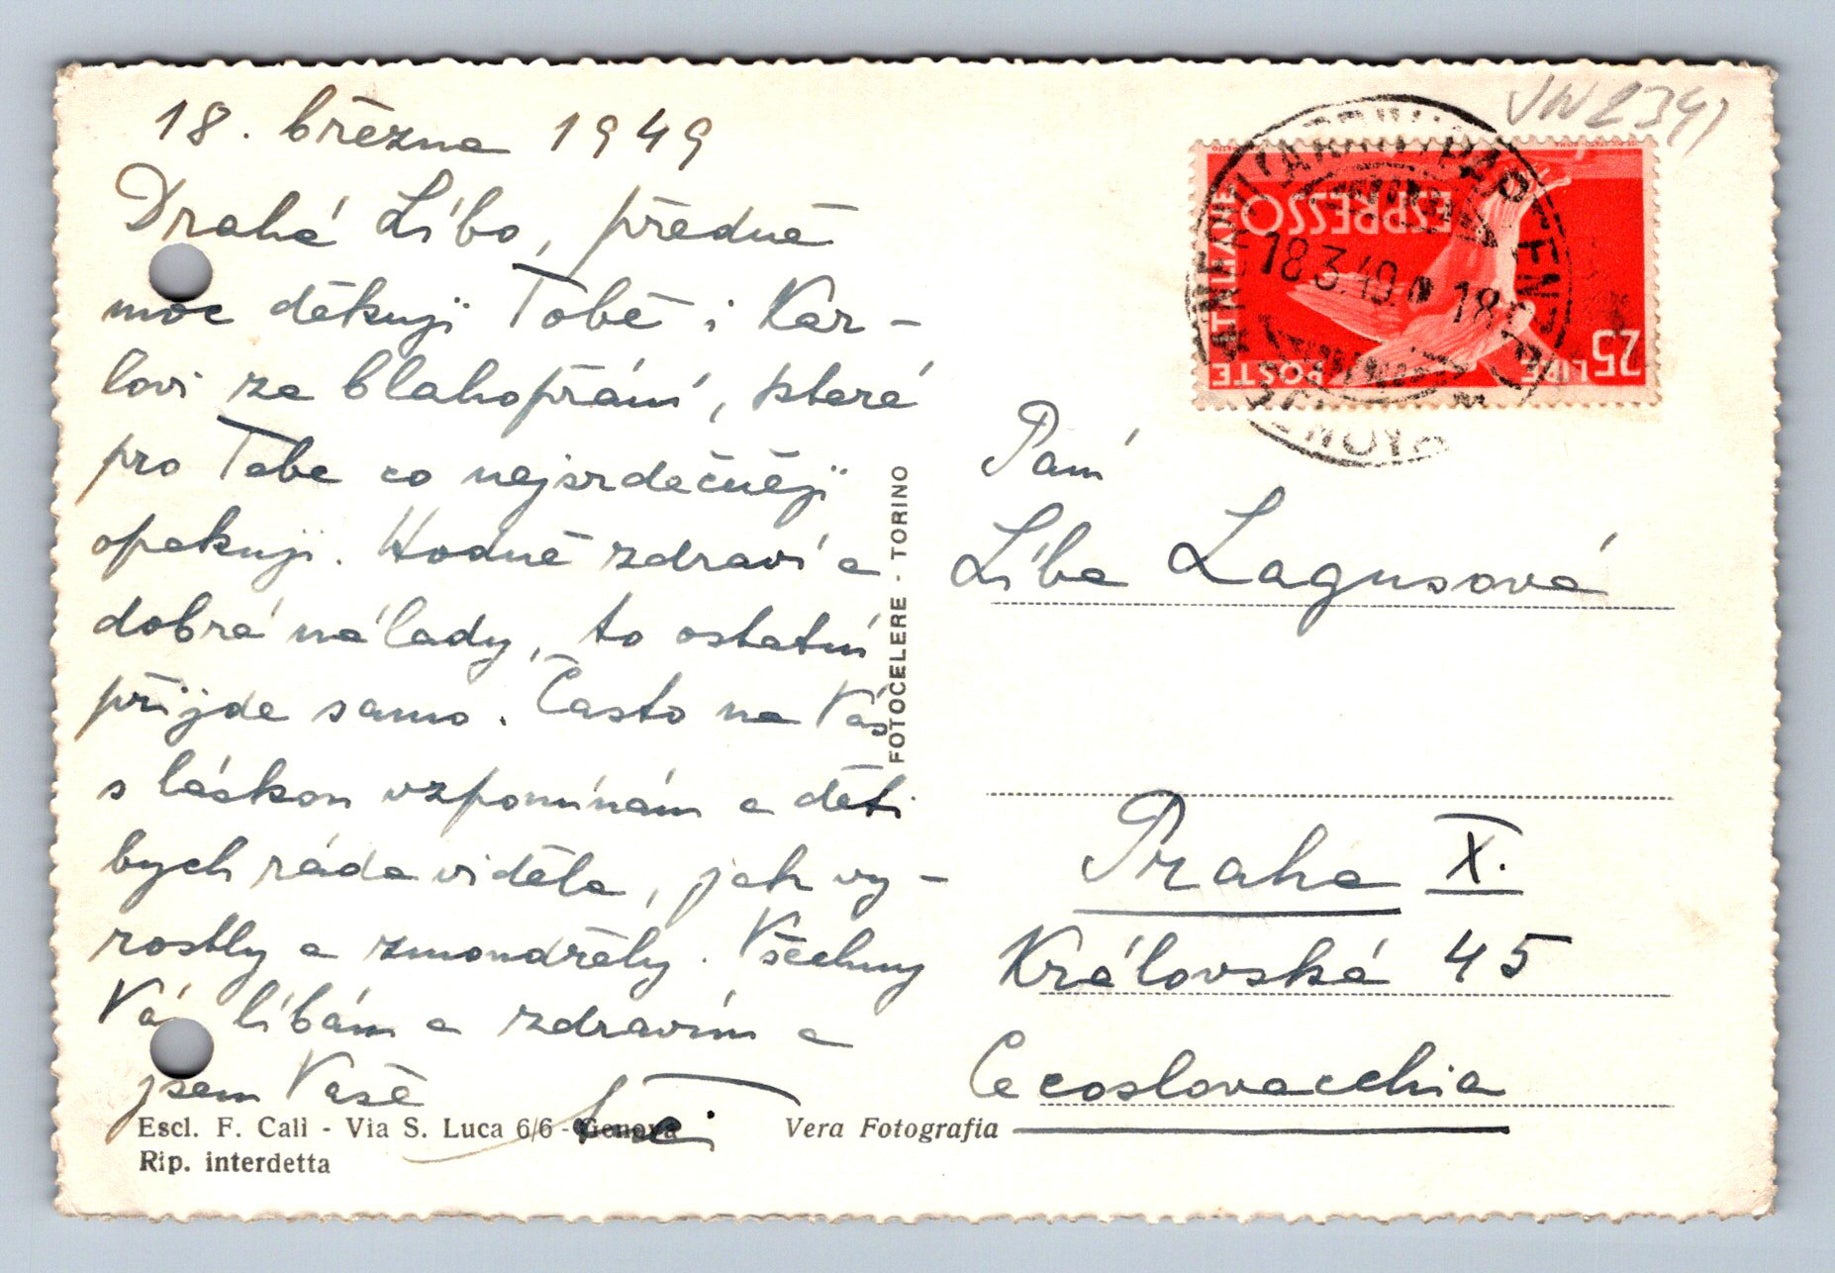 18. března 1949
Drahá Líbo, předně
moc děkuji Tobě i Kar-
lovi za blahopřání, které
pro Tebe co nejsrdečněji
opakuji. Hodně zdraví a
dobré nálady, to ostatní
přijde samo. Často na Vás
s láskou vzpomínám a děti
bych ráda viděla, jak vy-
rostly a zmoudřely. Všechny
Vá líbám a zdravím a
jsem Vaše
Escl. F. Cali - Via S. Luca 6/6 - Genova
Rip. interdetta
Vera Fotografia
FOTOCELERE - TORINO
VW2341
ESPRESSO
POSTE LIRE 25
18.3.49 18
GENOVA
Paní
Líba Lagusová
Praha X.
Královská 45
Cecoslovacchia